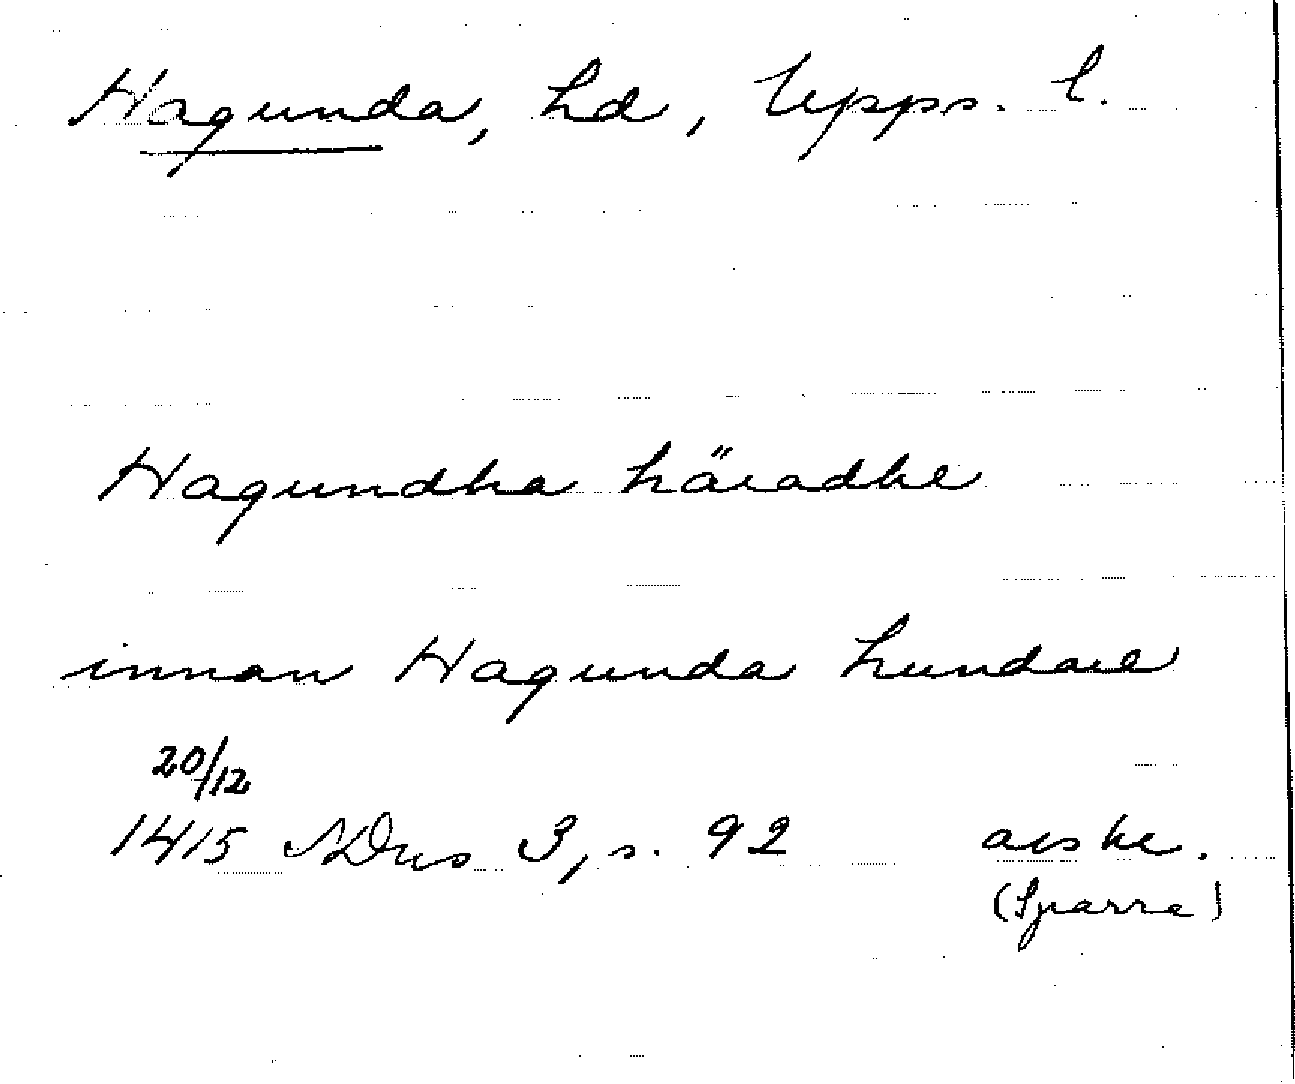 Hagunda, hd, Upps. l.
Hagundha häradhe
innan Hagunda hundare
20/12
1415 NDns 3, s. 92 avskr.
(Sparre)